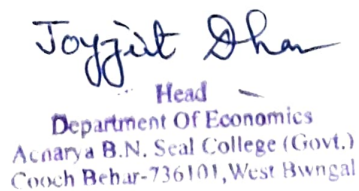 Joyjit Dhar
Head
Department Of Economics
Acharya B.N. Seal College (Govt.)
Cooch Behar-736101, West Bwngal